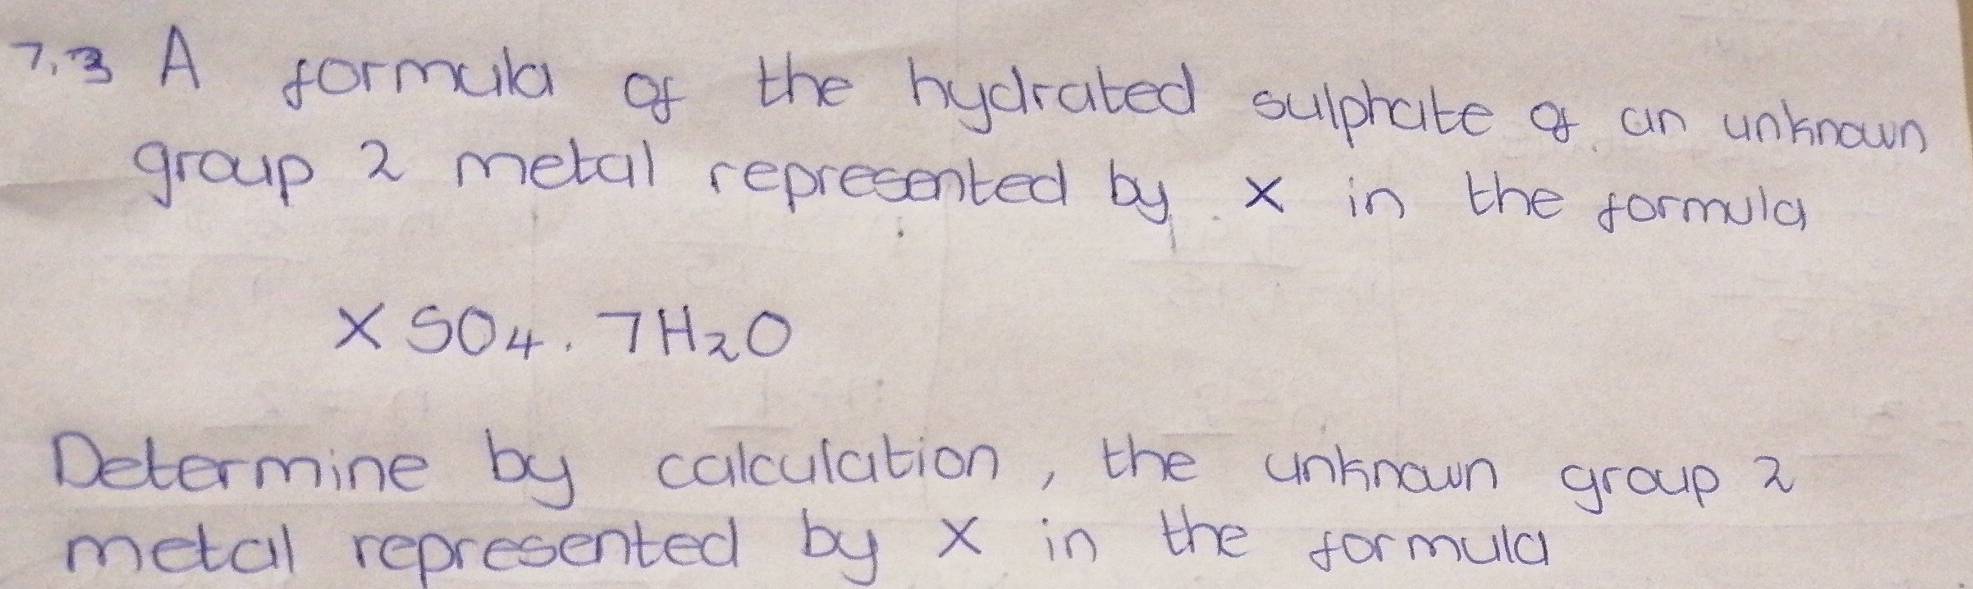 7.3 A formula of the hydrated sulphate of an unknown
group 2 metal represented by x in the formula
X SO4. 7H2O
Determine by calculation, the unknown group 2
metal represented by X in the formula